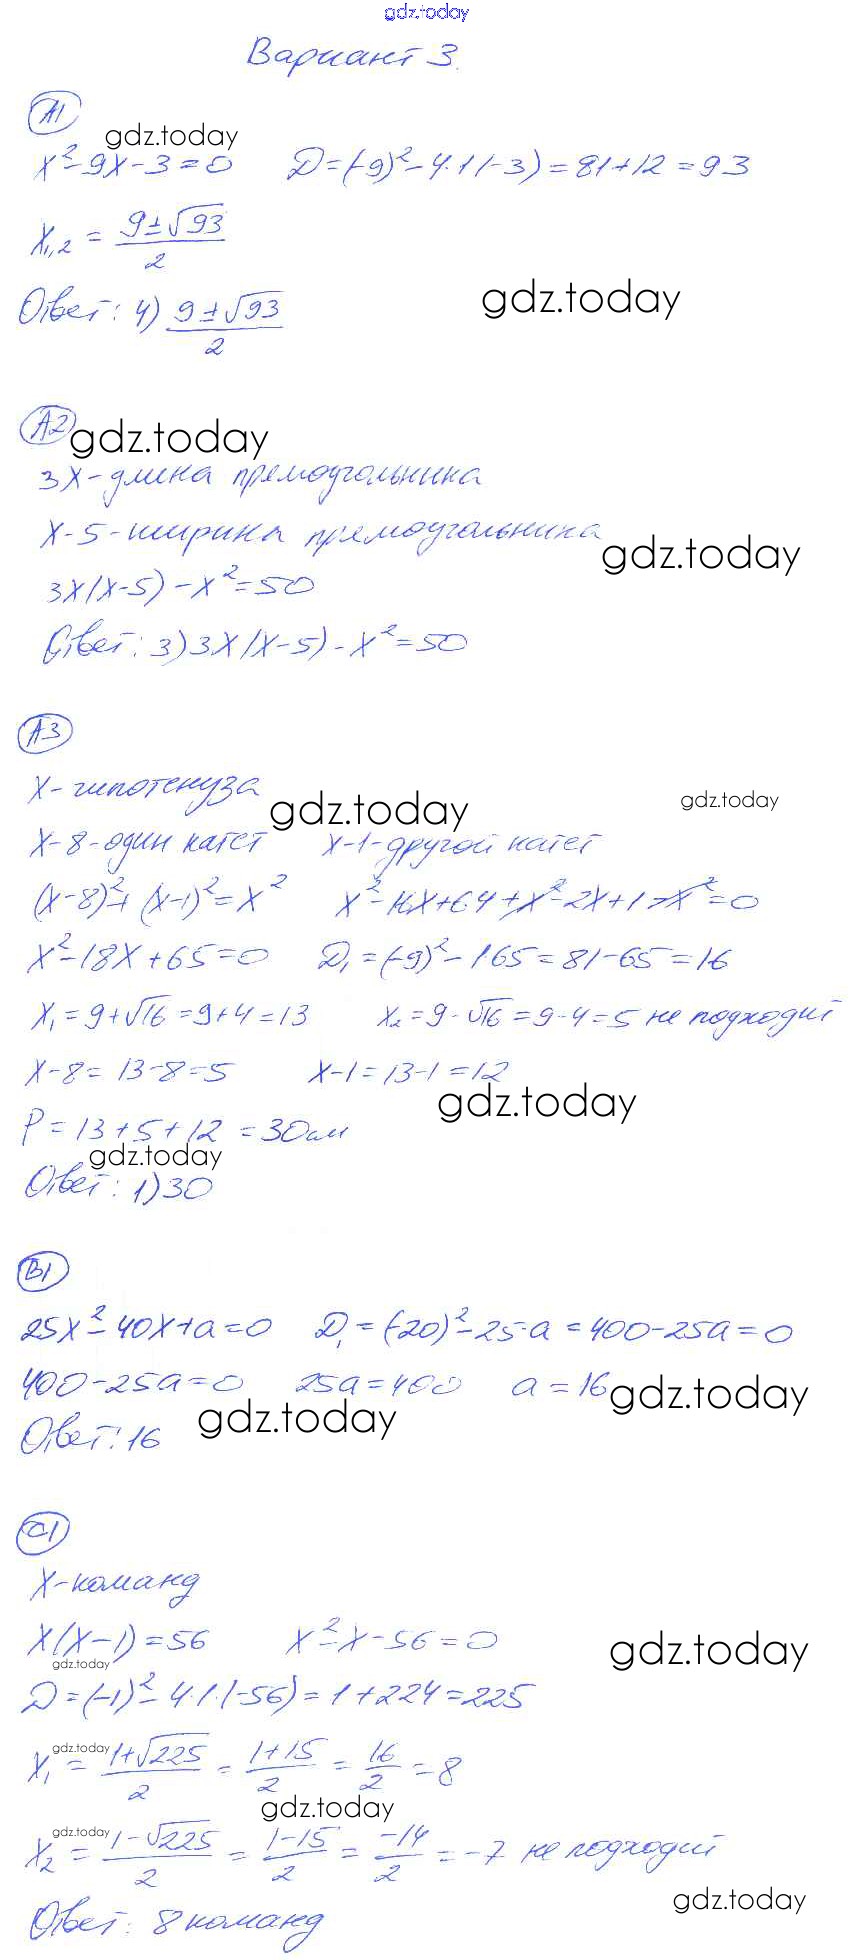 gdz.today
Вариант 3.
A1
gdz.today
x² - 9x - 3 = 0 D = (-9)² - 4·1(-3) = 81 + 12 = 93
x₁,₂ = (9 ± √93)/2
Ответ: 4) (9 ± √93)/2
gdz.today
A2
gdz.today
3x - длина прямоугольника
x - 5 - ширина прямоугольника
gdz.today
3x(x-5) - x² = 50
Ответ: 3) 3x(x-5) - x² = 50
A3
x - гипотенуза
gdz.today gdz.today
x - 8 - один катет x - 1 - другой катет
(x-8)² + (x-1)² = x² x² - 16x + 64 + x² - 2x + 1 - x² = 0
x² - 18x + 65 = 0 D₁ = (-9)² - 1·65 = 81 - 65 = 16
x₁ = 9 + √16 = 9 + 4 = 13 x₂ = 9 - √16 = 9 - 4 = 5 не подходит
x - 8 = 13 - 8 = 5 x - 1 = 13 - 1 = 12
gdz.today
P = 13 + 5 + 12 = 30 см
gdz.today
Ответ: 1) 30
B1
25x² - 40x + a = 0 D₁ = (-20)² - 25·a = 400 - 25a = 0
400 - 25a = 0 25a = 400 a = 16
gdz.today
gdz.today
Ответ: 16
C1
x - команд
x(x-1) = 56 x² - x - 56 = 0
gdz.today
gdz.today
D = (-1)² - 4·1·(-56) = 1 + 224 = 225
gdz.today
x₁ = (1+√225)/2 = (1+15)/2 = 16/2 = 8
gdz.today
gdz.today
x₂ = (1-√225)/2 = (1-15)/2 = -14/2 = -7 не подходит
gdz.today
Ответ: 8 команд